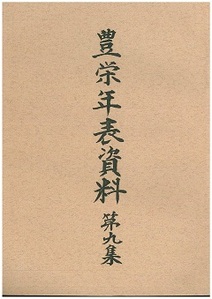 豊栄年表資料 第九集